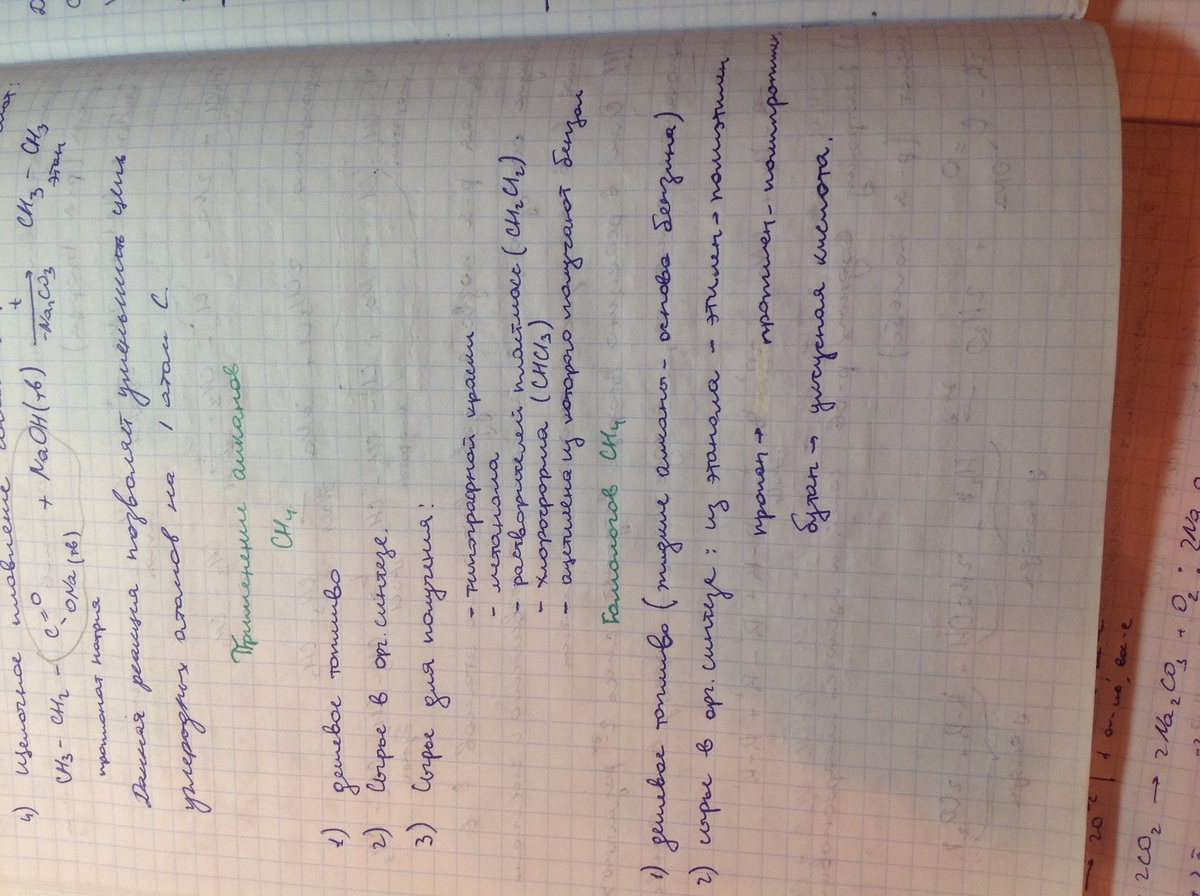 4) щелочное плавление
CH3 - CH2 - C =O - ONa (тв) + NaOH (тв) t → -Na2CO3 CH3 - CH3
пропионат натрия этан
Данная реакция позволяет уменьшить цепь
углеродных атомов на 1 атом C.
Применение алканов
CH4
1) дешевое топливо
2) Сырье в орг. синтезе.
3) Сырье для получения:
- типографной краски
- метанола
- растворителей пластмасс (CH2Cl2)
- хлороформа (CHCl3)
- ацетилена из которого получают бензол
Гомологов CH4
1) дешевое топливо (жидкие алканы - основа бензина)
2) сырье в орг. синтезе: из этанола - этилен → полиэтилен
пропан → пропилен - полипропилен.
бутан → уксусная кислота.
2CO2 → 2Na2CO3 + O2